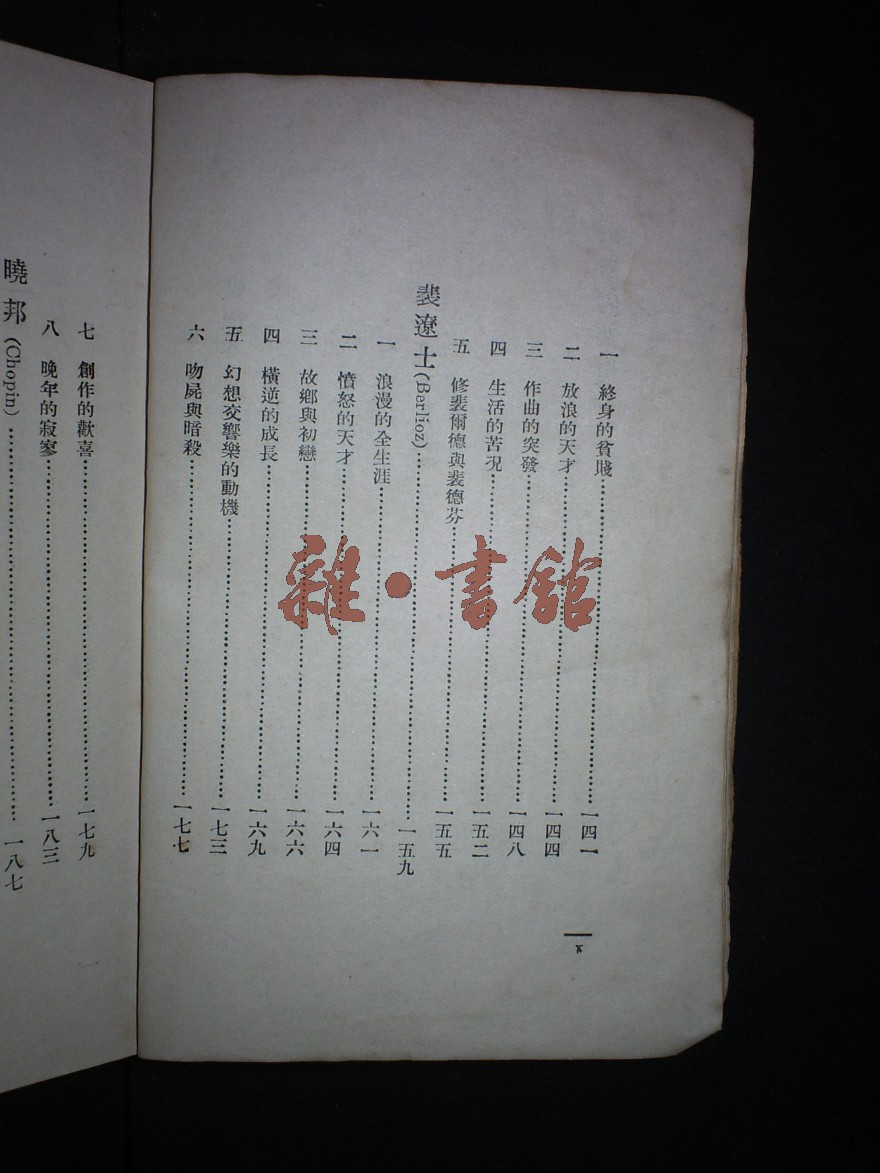 一　終身的貧賤……一四一
二　放浪的天才……一四四
三　作曲的突發……一四八
四　生活的苦況……一五二
五　修裴爾德與裴德芬……一五五
裴遼士(Berlioz)……一五九
一　浪漫的全生涯……一六一
二　憤怒的天才……一六四
三　故鄉與初戀……一六六
四　橫逆的成長……一六九
五　幻想交響樂的動機……一七三
六　吻屍與暗殺……一七七
x
七　創作的歡喜……一七九
八　晚年的寂寥……一八三
曉邦(Chopin)……一八七
雜·書館